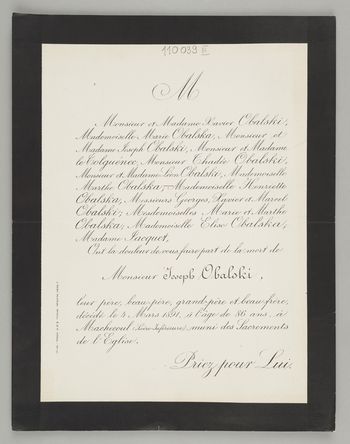 110 039 II
M
Monsieur et Madame Xavier Obalski,
Mademoiselle Marie Obalska, Monsieur et
Madame Joseph Obalski, Monsieur et Madame
le Tolguénec, Monsieur Thadée Obalski,
Monsieur et Madame Léon Obalski, Mademoiselle
Marthe Obalska, Mademoiselle Henriette
Obalska, Messieurs Georges, Xavier et Marcel
Obalski, Mesdemoiselles Marie et Marthe
Obalska, Mademoiselle Elise Obalska,
Madame Jacquet,
Ont la douleur de vous faire part de la mort de
Monsieur Joseph Obalski,
leur père, beau-père, grand-père et beau-frère,
décédé le 4 Mars 1891, à l'âge de 86 ans, à
Machecoul (Loire-Inférieure) muni des Sacrements
de l'Eglise.
Priez pour Lui.